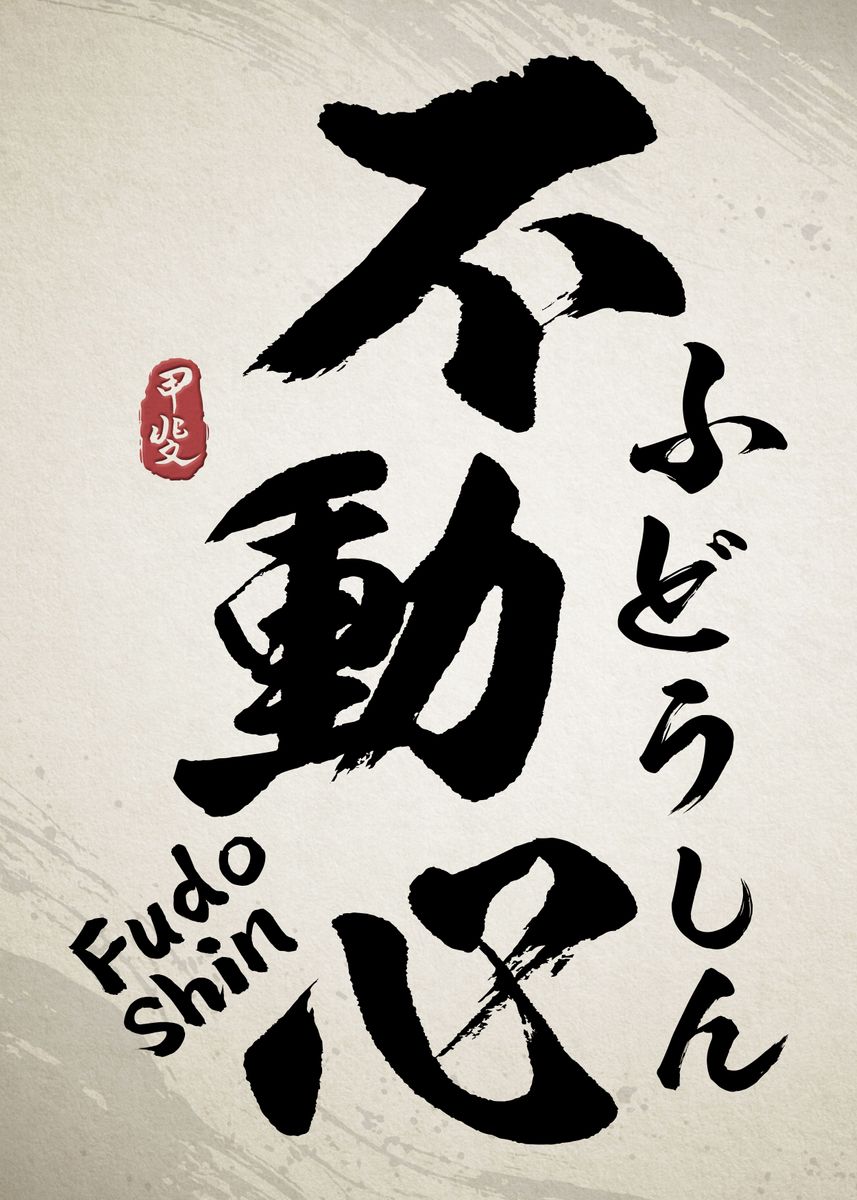 不動心
ふどうしん
甲斐
Fudo
Shin